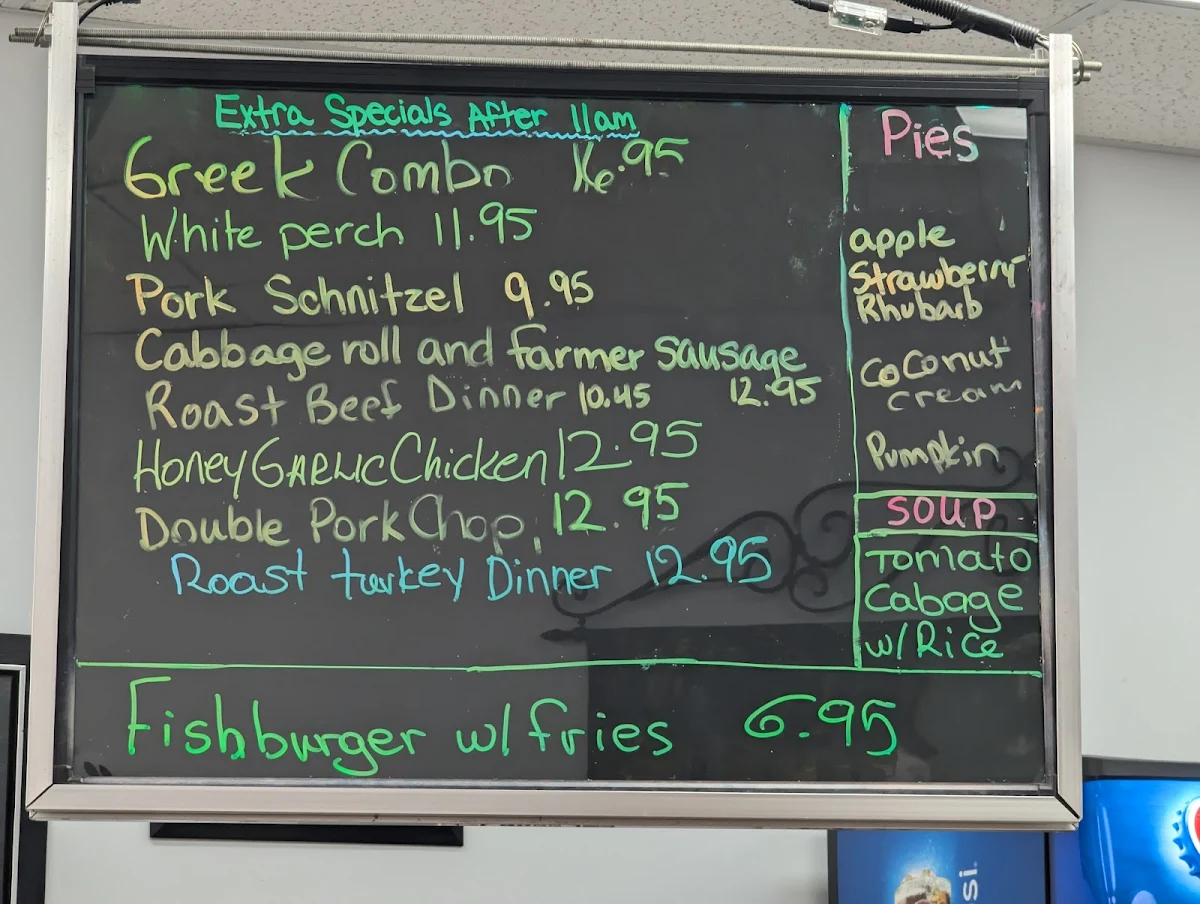 Extra Specials After 11am
Greek Combo 16.95
White perch 11.95
Pork Schnitzel 9.95
Cabbage roll and farmer sausage
12.95
Roast Beef Dinner 10.45
Honey GARLIC Chicken 12.95
Double Pork Chop, 12.95
Roast turkey Dinner 12.95
Fishburger w/ fries 6.95
Pies
apple
Strawberry
Rhubarb
Coconut
cream
Pumpkin
SOUP
Tomato
Cabage
w/ Rice
si.